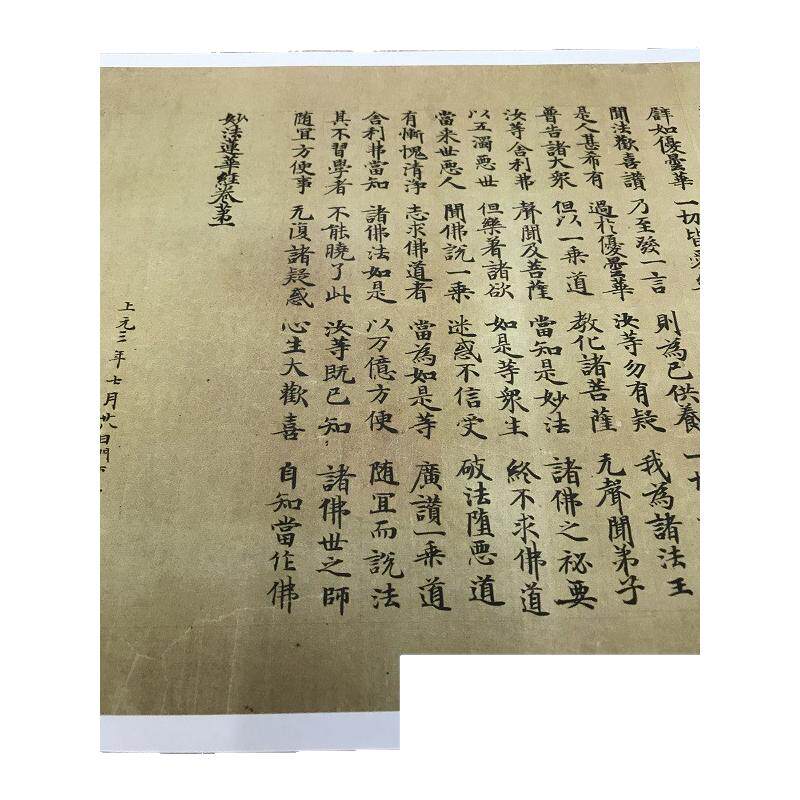 譬如優曇華 一切皆愛
聞法歡喜讚 乃至發一言 則為已供養 一切
是人甚希有 過於優曇華 汝等勿有疑 我為諸法王
普告諸大衆 但以一乘道 教化諸菩薩 无聲聞弟子
汝等舍利弗 聲聞及菩薩 當知是妙法 諸佛之祕要
以五濁惡世 但樂著諸欲 如是等衆生 終不求佛道
當来世惡人 聞佛說一乘 迷惑不信受 破法墮惡道
有慚愧清淨 志求佛道者 當為如是等 廣讚一乘道
舍利弗當知 諸佛法如是 以万億方便 随宜而說法
其不習學者 不能曉了此 汝等既已知 諸佛世之師
随宜方便事 无復諸疑惑 心生大歡喜 自知當作佛
妙法蓮華經卷第一
上元三年七月廿八日門